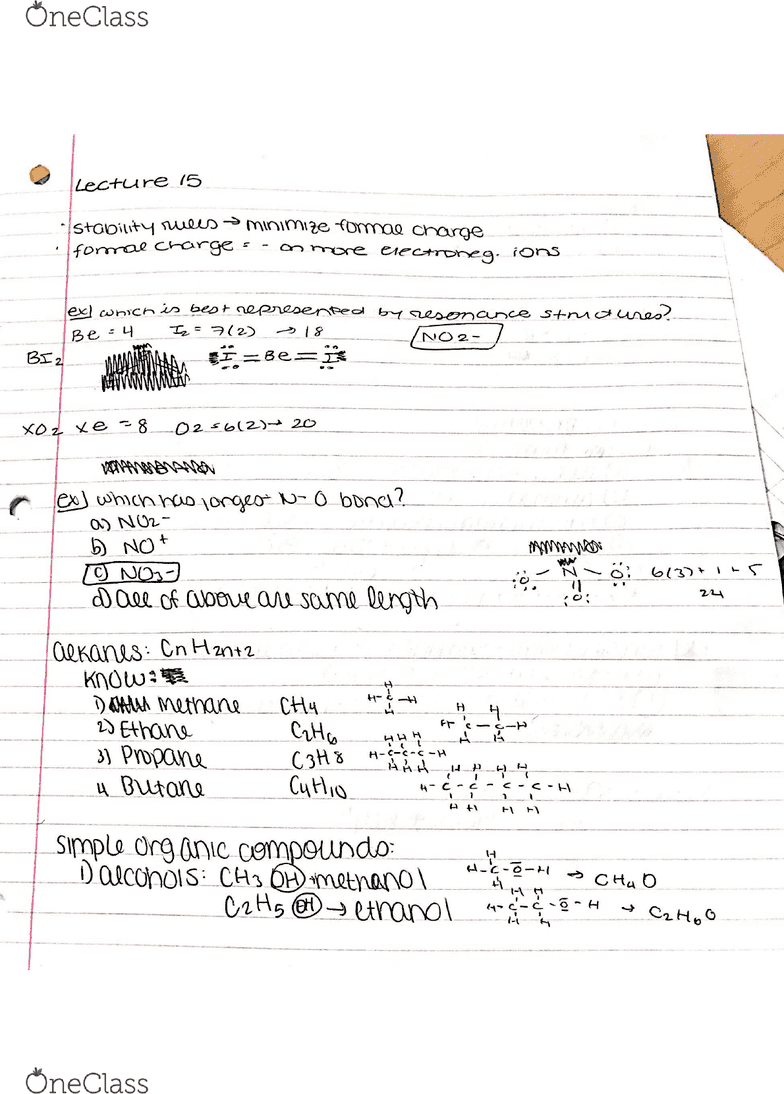 OneClass
Lecture 15
· stability rules → minimize formal charge
· formal charge = - on more electroneg. ions
ex) which is best represented by resonance structures?
Be = 4 I2 = 7(2) → 18 NO2-
BI2 I = Be = I
XO2 Xe = 8 O2 = 6(2) → 20
ex) which has longest N-O bond?
a) NO2-
b) NO+
c) NO3-
O - N - O 6(3) + 1 + 5
O 24
d) all of above are same length
alkanes: CnH2n+2
Know:
1) methane CH4
2) Ethane C2H6
3) Propane C3H8
4 Butane C4H10
simple organic compounds:
1) alcohols: CH3 OH → methanol H-C-O-H → CH4O
C2H5 OH → ethanol H-C-C-O-H → C2H6O
OneClass